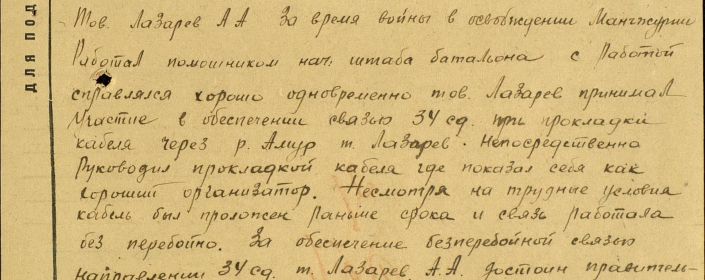 ДЛЯ ПОД
Тов. Лазарев А А За время войны в освобождении Манчжурии
Работал помошником нач. штаба батальона с Работой
справлялся хорошо одновременно тов. Лазарев принимал
Участие в обеспечении связью 34 сд. при прокладки
кабеля через р. Амур т. Лазарев. Непосредственно
Руководил прокладкой кабеля где показал себя как
хороший организатор. Несмотря на трудные условия
кабель был проложен раньше срока и связь работала
без перебойно. За обеспечение безперебойной связью
направлении 34 сд. т. Лазарев А.А. достоин правитель-